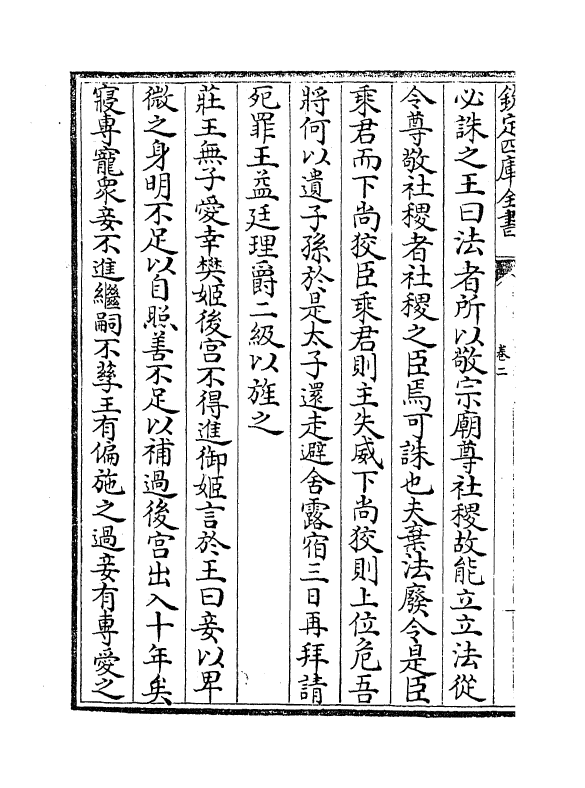 欽定四庫全書
卷二
必誅之王曰法者所以敬宗廟尊社稷故能立立法從
令尊敬社稷者社稷之臣焉可誅也夫棄法廢令是臣
乘君而下尚狡臣乘君則主失威下尚狡則上位危吾
將何以遺子孫於是太子還走避舍露宿三日再拜請
死罪王益廷理爵二級以旌之
莊王無子愛幸樊姬後宮不得進御姬言於王曰妾以卑
微之身明不足以自照善不足以補過後宮出入十年矣
寢專寵衆妾不進繼嗣不孳王有偏施之過妾有專愛之